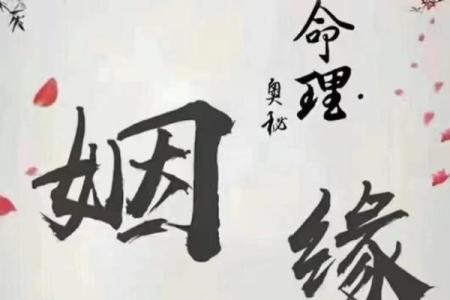 命理
奥秘
姻
缘